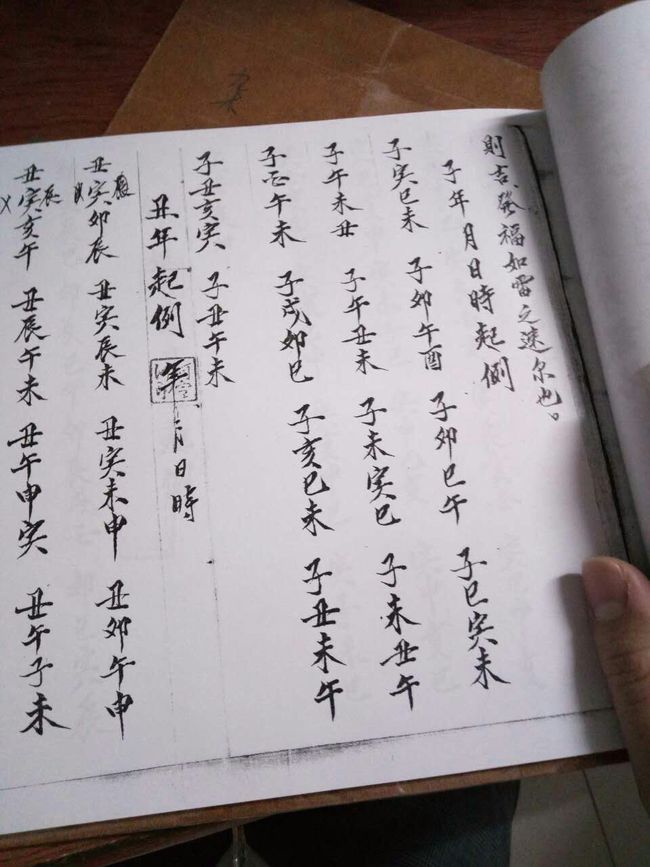 則吉發福如雷之速尔也。
子年月日時起例
子寅巳未　子卯午酉　子卯巳午　子巳寅未
子午未丑　子午丑未　子未寅巳　子未丑午
子午未　子戌卯巳　子亥巳未　子丑未午
子丑亥寅　子丑午未
丑年起例　年月日時
丑寅卯辰　丑寅辰未　丑寅未申　丑卯午申
丑寅亥午　丑辰午未　丑午申寅　丑午子未
辰